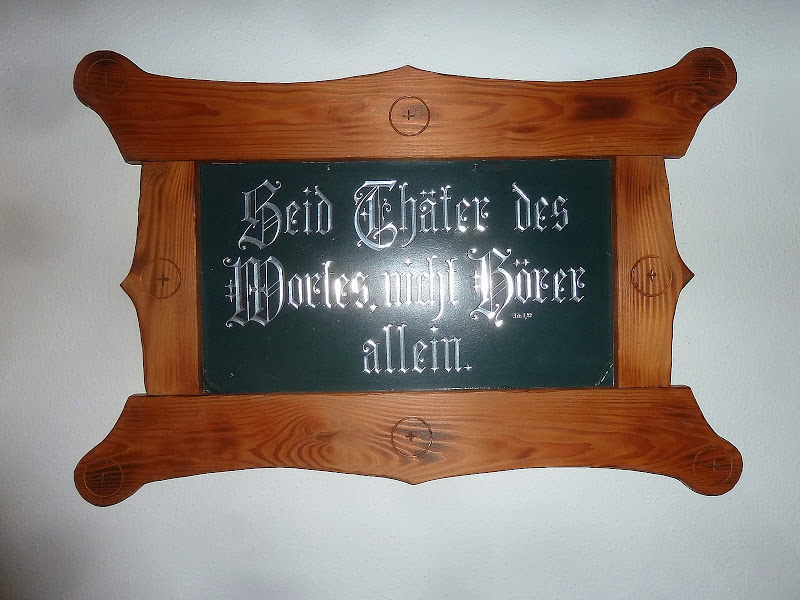 Seid Thäter des
Wortes, nicht Hörer
Jak. 1,22
allein.